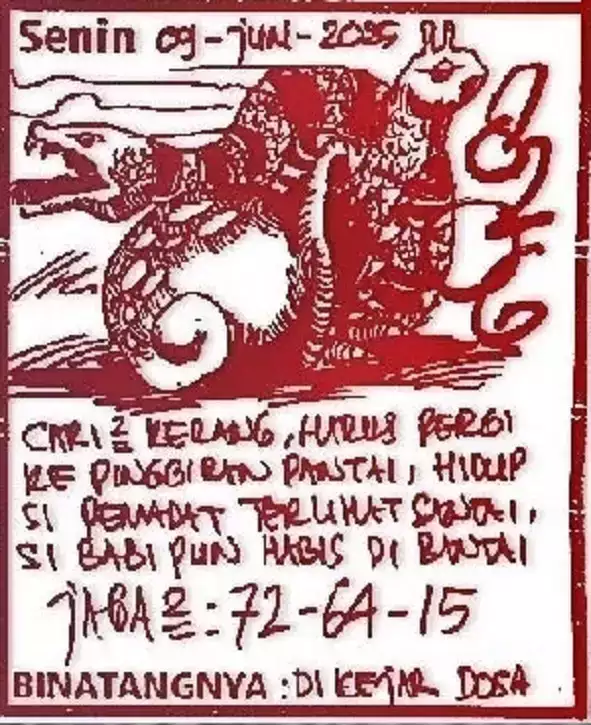 Senin 09-juni-2025
CARI2 KERANG, HARUS PERGI
KE PINGGIRAN PANTAI, HIDUP
SI PENADAT TERLIHAT SANTAI,
SI BABI PUN HABIS DI BANTAI
jAGA2 : 72-64-15
BINATANGNYA : DI KEjAR DOSA